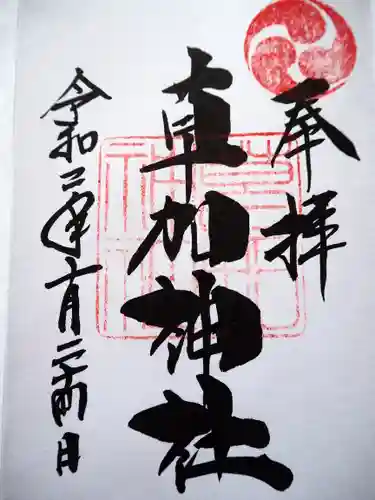 奉拝
草加神社
令和二年十月二十四日